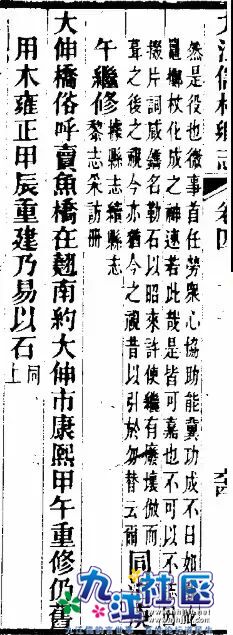 儒林鄉志 卷四
然是役也微事首任勞衆心協助能冀功成不日如
杖化成之神速若此哉是皆可嘉也不可以不
掇片詞咸鐫名勒石以昭來許使繼有廢壞倣而
葺之後之視今亦猶今之視昔以引於勿替云爾 同
午繼修 據縣志續縣志
黎志采訪冊
大伸橋俗呼賣魚橋在翹南約大伸市康熙甲午重修仍舊
用木雍正甲辰重建乃易以石 同上
九江社区